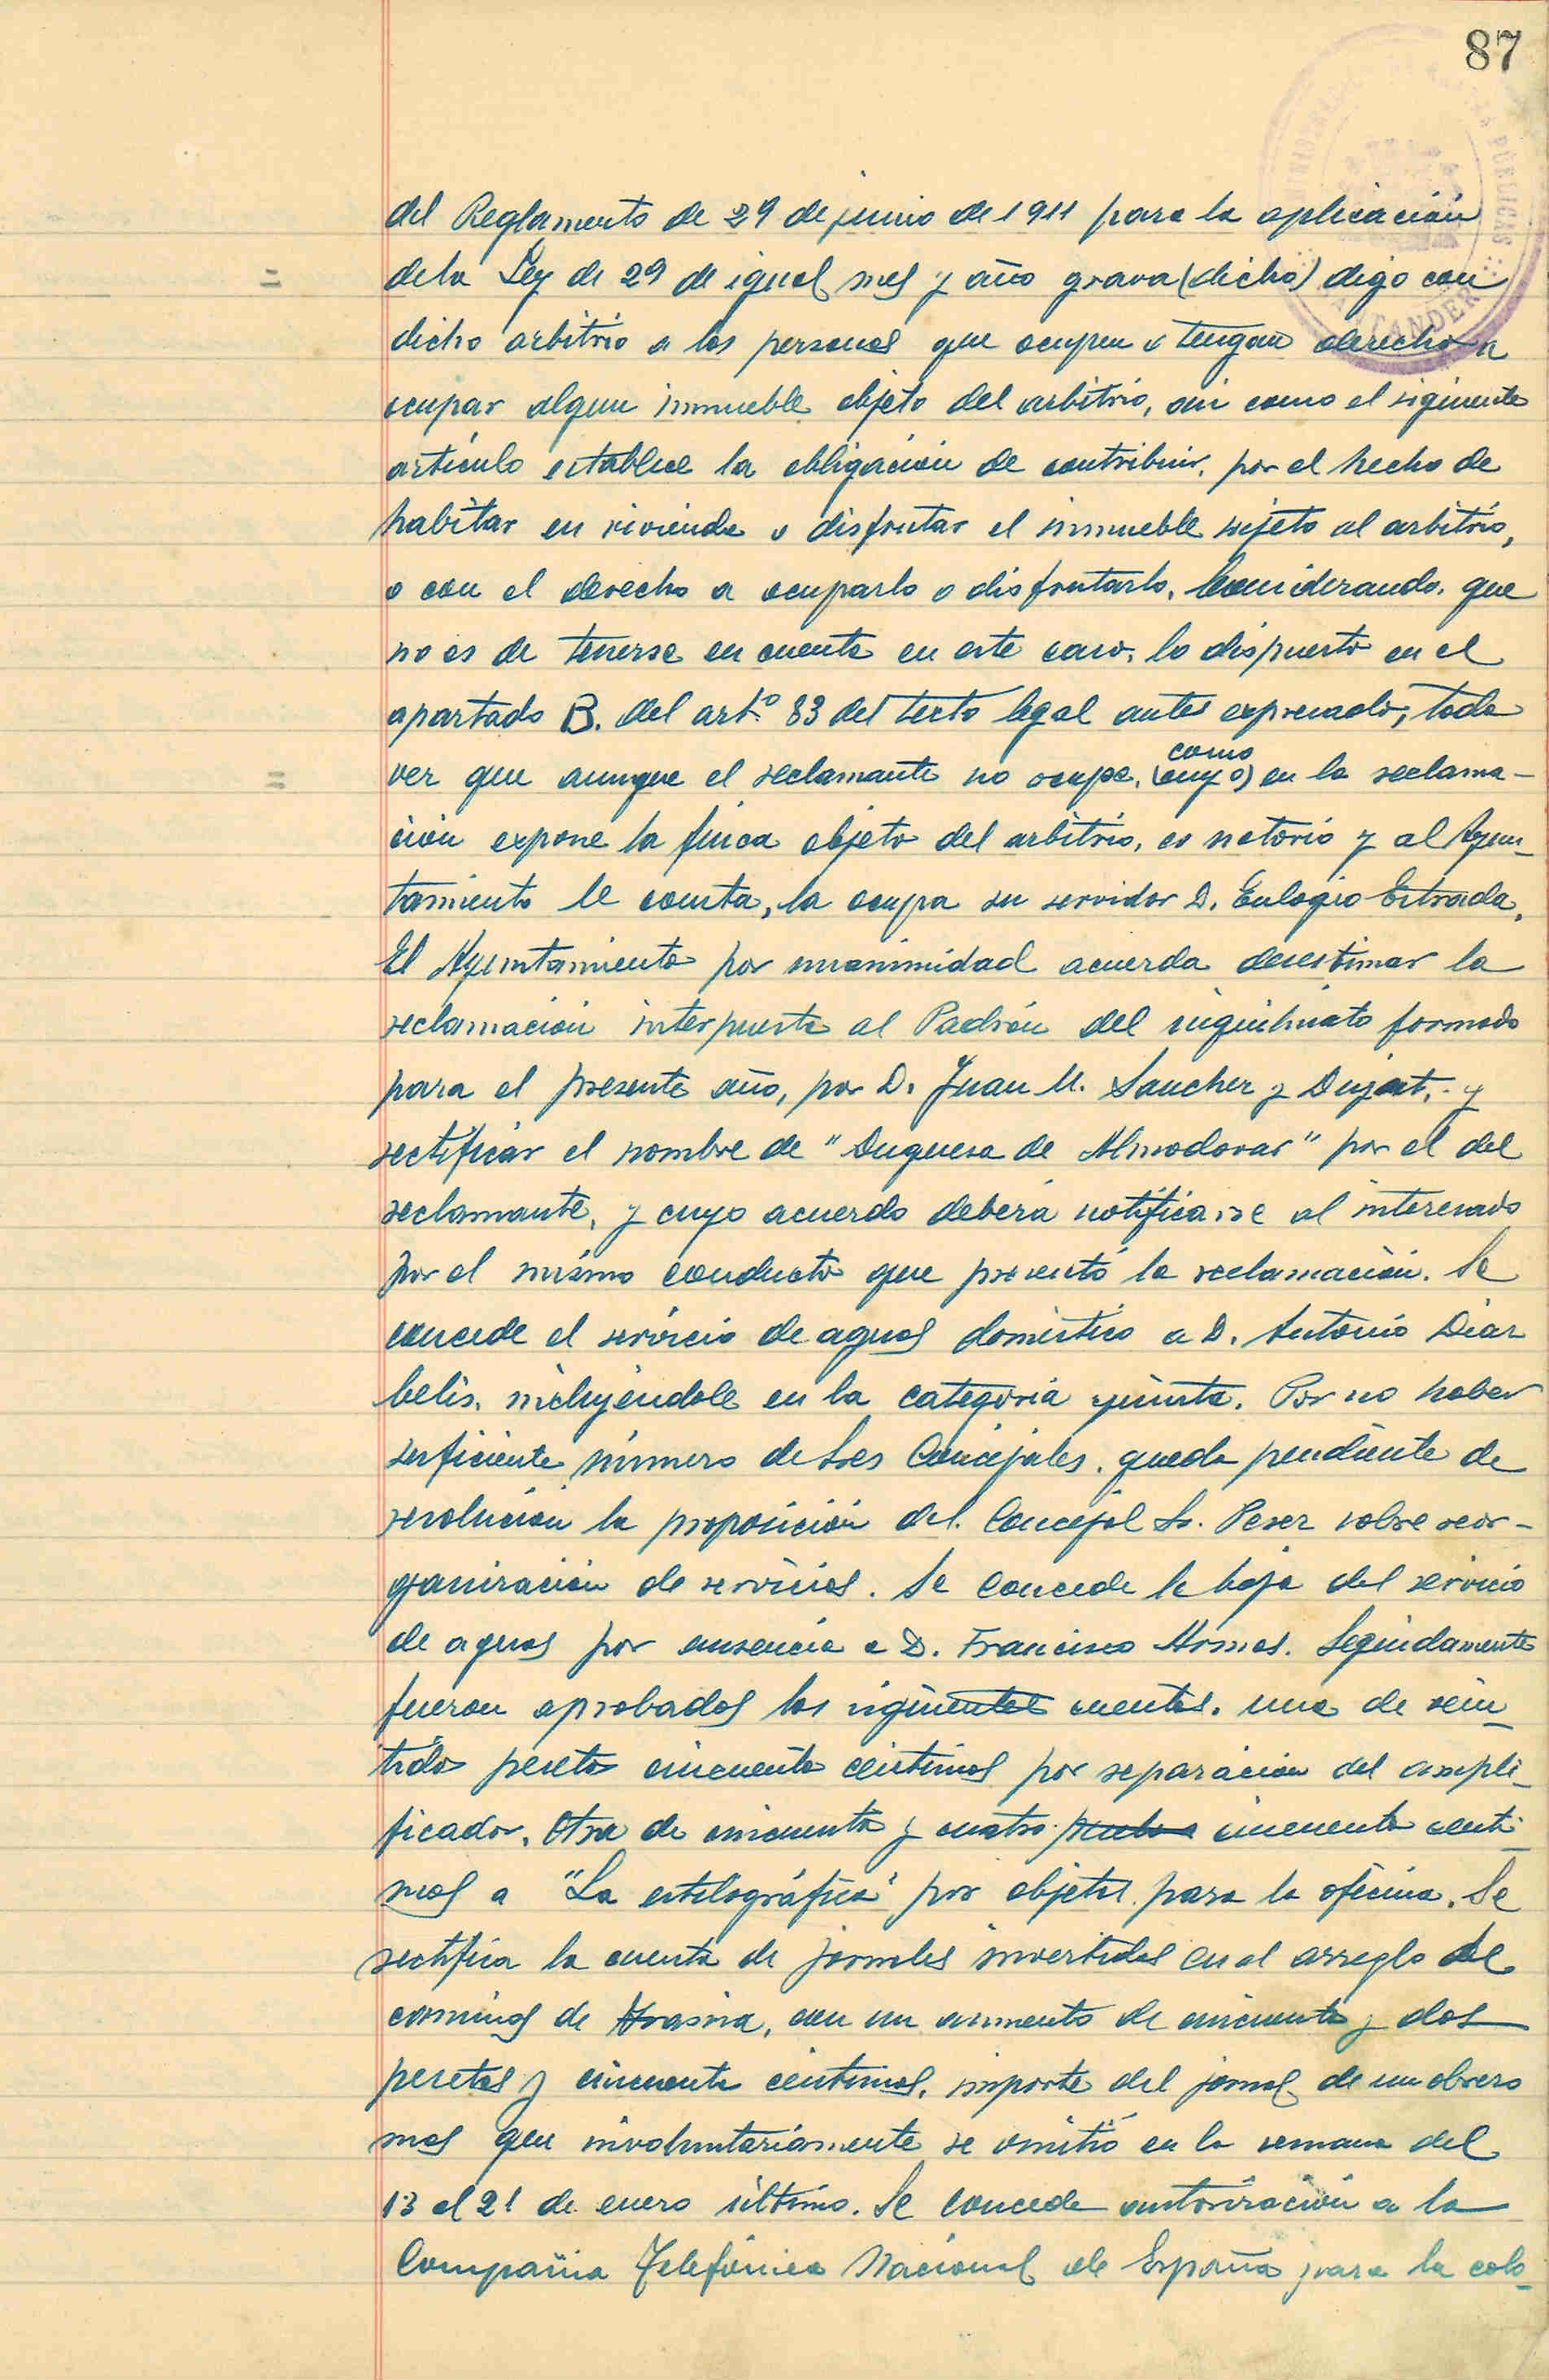 87
PÚBLICAS
SANTANDER
del Reglamento de 29 de junio de 1911 para la aplicación
de la Ley de 29 de igual mes y año grava (dicho) digo con
dicho arbitrio a las personas que ocupen o tengan derecho a
ocupar algun inmueble objeto del arbitrio, asi como el siguiente
artículo establece la obligación de contribuir, por el hecho de
habitar en vivienda o disfrutar el inmueble sujeto al arbitrio,
o con el derecho a ocuparlo o disfrutarlo. Considerando, que
no es de tenerse en cuenta en este caso, lo dispuesto en el
apartado B. del artº 83 del texto legal antes expresado, toda
vez que aunque el reclamante no ocupe, (cuyo) como en la reclama-
ción expone la finca objeto del arbitrio, es notorio y al Ayun-
tamiento le consta, la ocupa su servidor D. Eulogio Estrada.
El Ayuntamiento por unanimidad acuerda desestimar la
reclamación interpuesta al Padrón del inquilinato formado
para el presente año, por D. Juan M. Sanchez y y
rectificar el nombre de "Duquesa de Almodovar" por el del
reclamante, y cuyo acuerdo deberá notificarse al interesado
por el mismo conducto que presentó la reclamación. Se
concede el servicio de aguas doméstico a D. Antonio Diaz
Celis, incluyéndole en la categoria quinta. Por no haber
suficiente número de Sres Concejales, queda pendiente de
resolución la proposición del Concejal Sr. Perez sobre reor-
ganización de servicios. Se concede la baja del servicio
de aguas por ausencia a D. Francisco Seguidamente
fueron aprobadas las siguientes cuentas. una de vein-
tidos pesetas cincuenta céntimos por reparación del ampli-
ficador. Otra de cincuenta y cuatro pesetas cincuenta centi-
mos a "La estilográfica" por objetos para la oficina. Se
rectifica la cuenta de jornales invertidos en el arreglo de
caminos de con un aumento de cincuenta y dos
pesetas y cincuenta centimos, importe del jornal de un obrero
mas que involuntariamente se omitió en la semana del
13 al 21 de enero último. Se concede autorización a la
Compañia Telefónica Nacional de España para la colo-